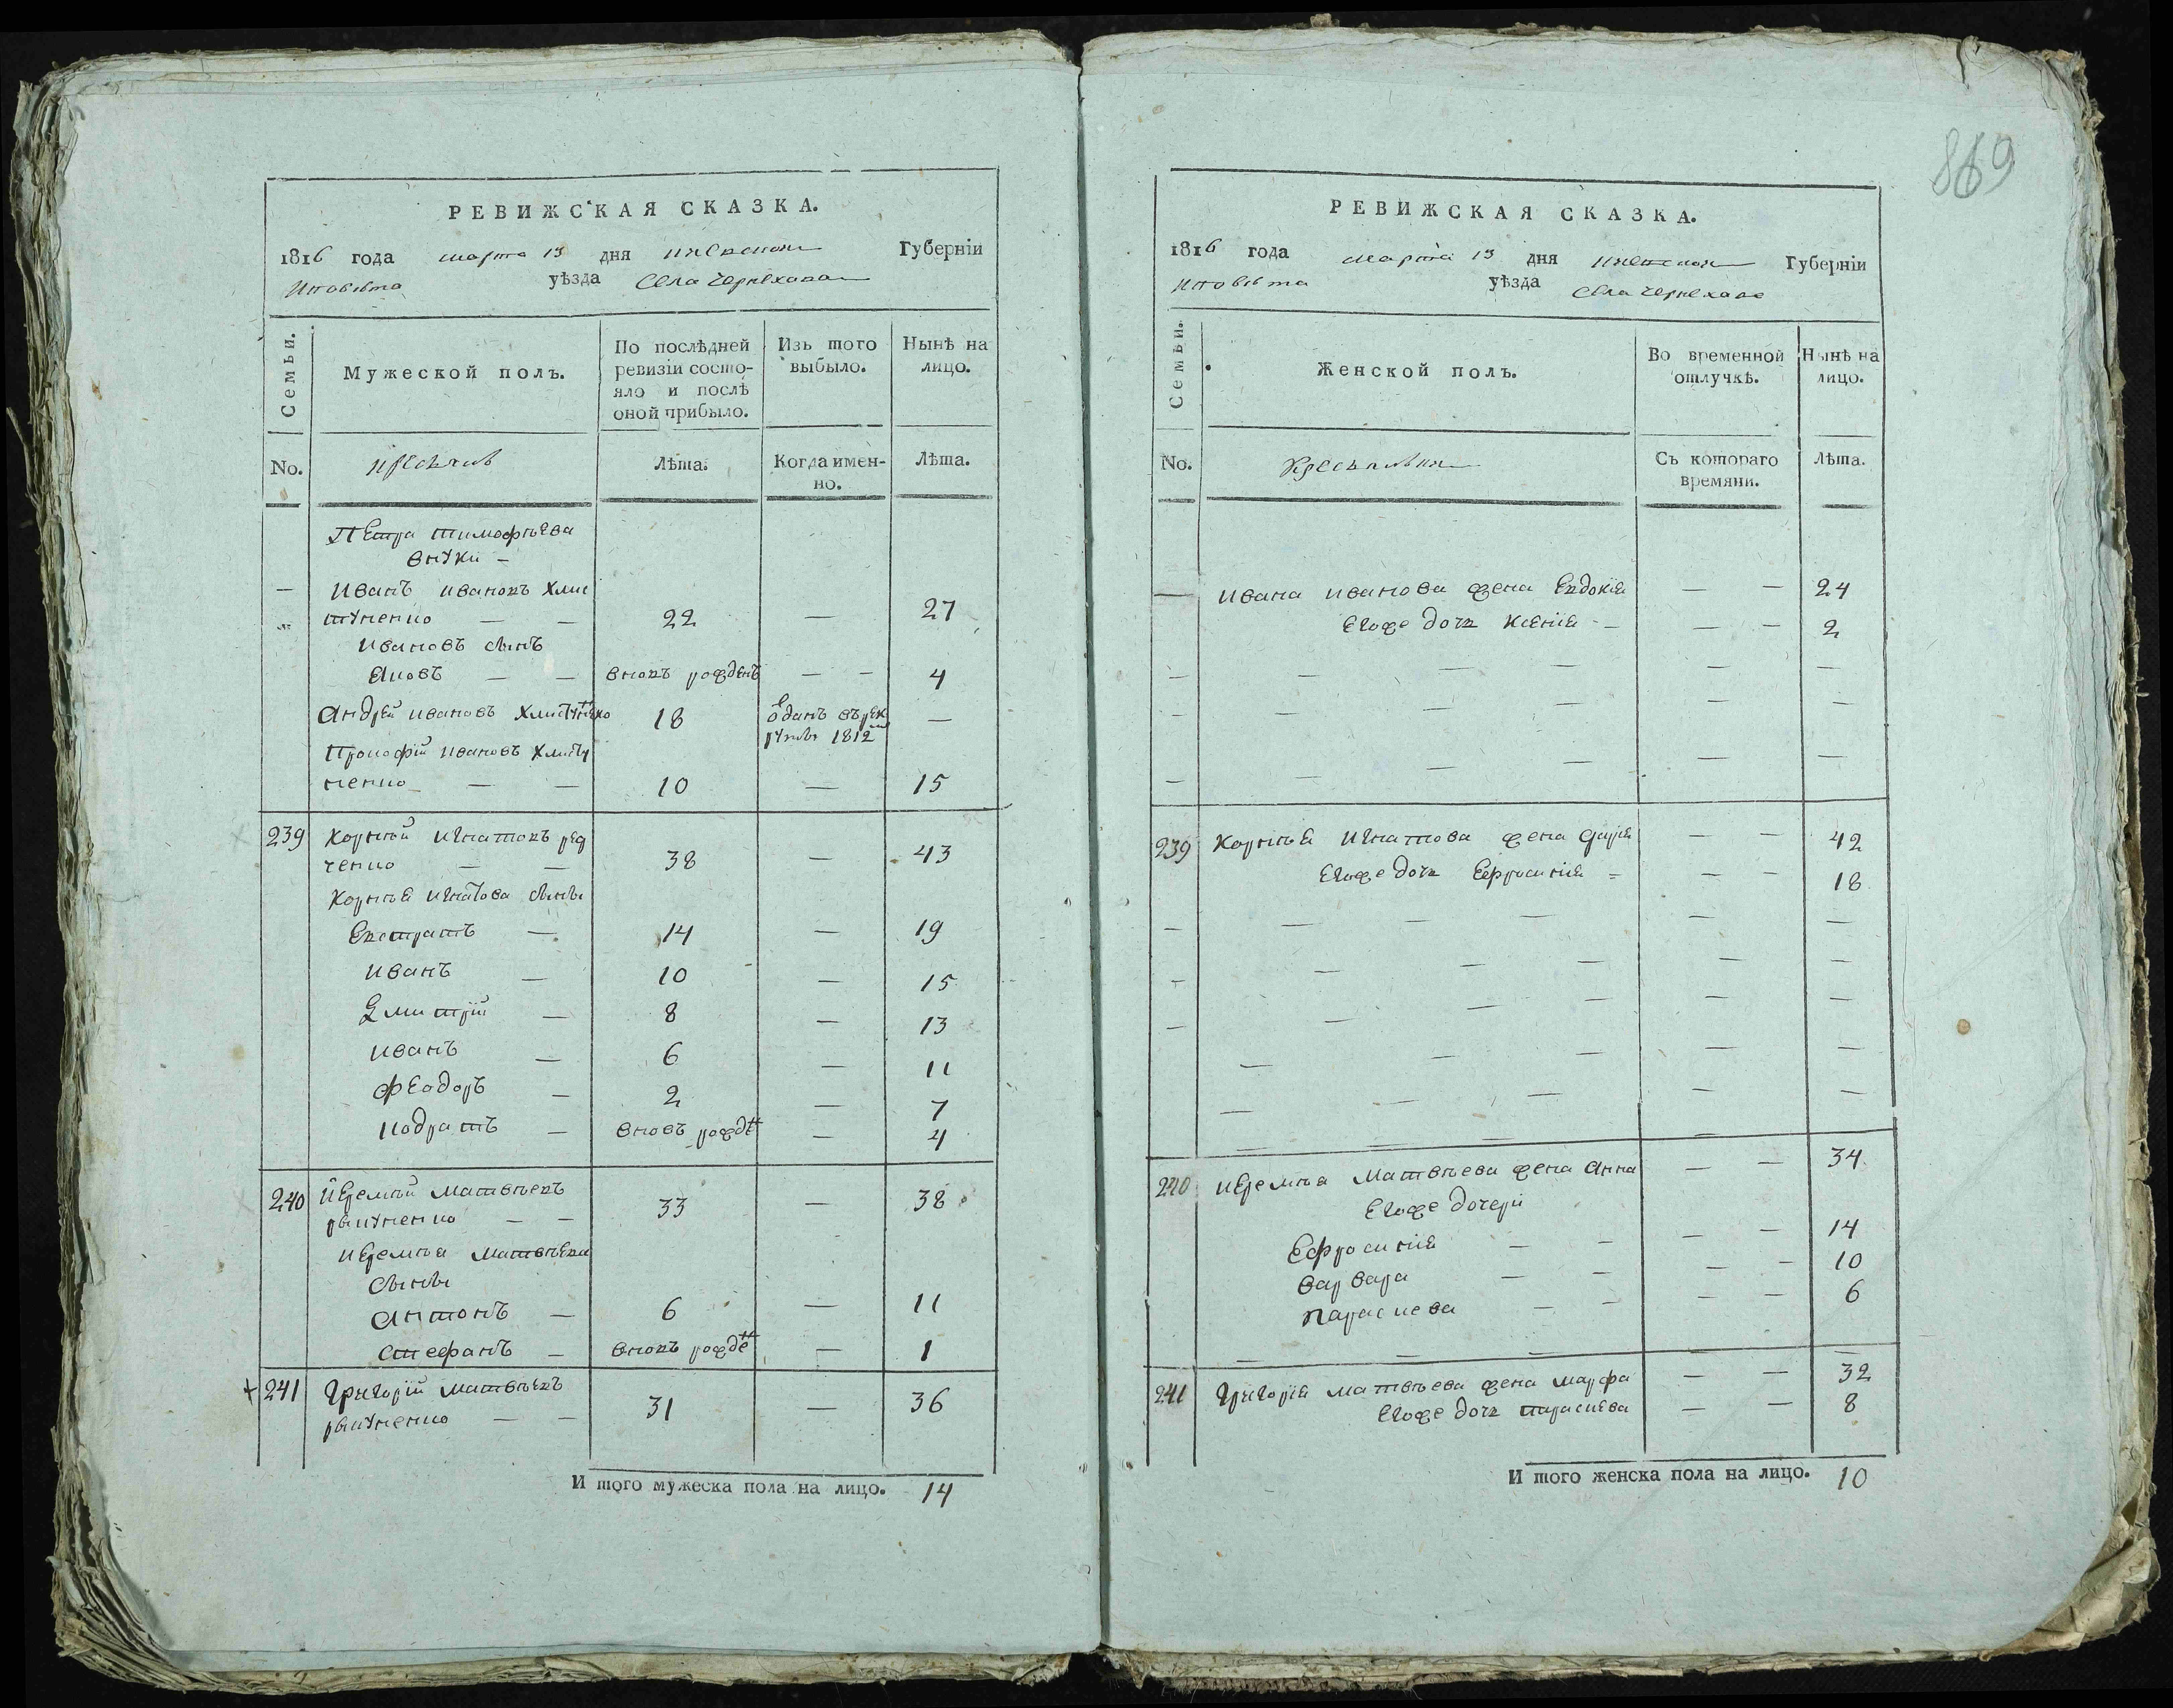 РЕВИЖСКАЯ СКАЗКА.
1816 года марта 13 дня Киевской Губерніи
Иповѣта уѣзда Села Чернехова
Семьи.
Мужеской полъ.
По послѣдней ревизіи состо-
яло и послѣ
оной прибыло.
Изъ того
выбыло.
Нынѣ на
лицо.
No.
Лѣта.
Когда имен-
но.
Лѣта.
Петра тимофѣева
внуки —
— иванъ ивановъ Хмис
туненко — — 22 — 27
ивановъ сынъ
Яковъ — — вновь рожденъ — — 4
андрей ивановъ Хмистуненко 18 ѿданъ въ рек
руты 1812 —
Прокофій ивановъ Хмисту
ненко — — 10 — 15
239 Корнѣй игнатовъ ред
ченко — — 38 — 43
Корнѣя игнатова сыны
Евстратъ — 14 — 19
иванъ — 10 — 15
Дмитрій — 8 — 13
иванъ — 6 — 11
Феодоръ — 2 — 7
кодратъ — вновь рожде — 4
240 иеремѣй матвѣевъ 33 — 38
— —
иеремѣя матвѣева
сыны
антонъ — 6 — 11
стефанъ — вновь рожде — 1
241 григорій матвѣевъ 31 — 36
— —
И того мужеска пола на лицо. 14
869
РЕВИЖСКАЯ СКАЗКА.
1816 года марта 13 дня Киевской Губерніи
Иповѣта уѣзда Села Чернехова
Семьи.
Женской полъ.
Во временной
отлучкѣ.
Нынѣ на
лицо.
No.
Съ котораго
времяни.
Лѣта.
— ивана иванова жена Евдокія — — 24
Егоже дочь Ксенія — — — 2
239 Корнѣя игнатова жена дарія — — 42
Егоже дочь Ефросинія — — 18
240 иеремѣя матвѣева жена анна — — 34
Егоже дочери
Ефросинія — — — — 14
варвара — — — — 10
параскева — — — — 6
241 григорія матвѣева жена марфа — — 32
Егоже дочь параскева — — 8
И того женска пола на лицо. 10